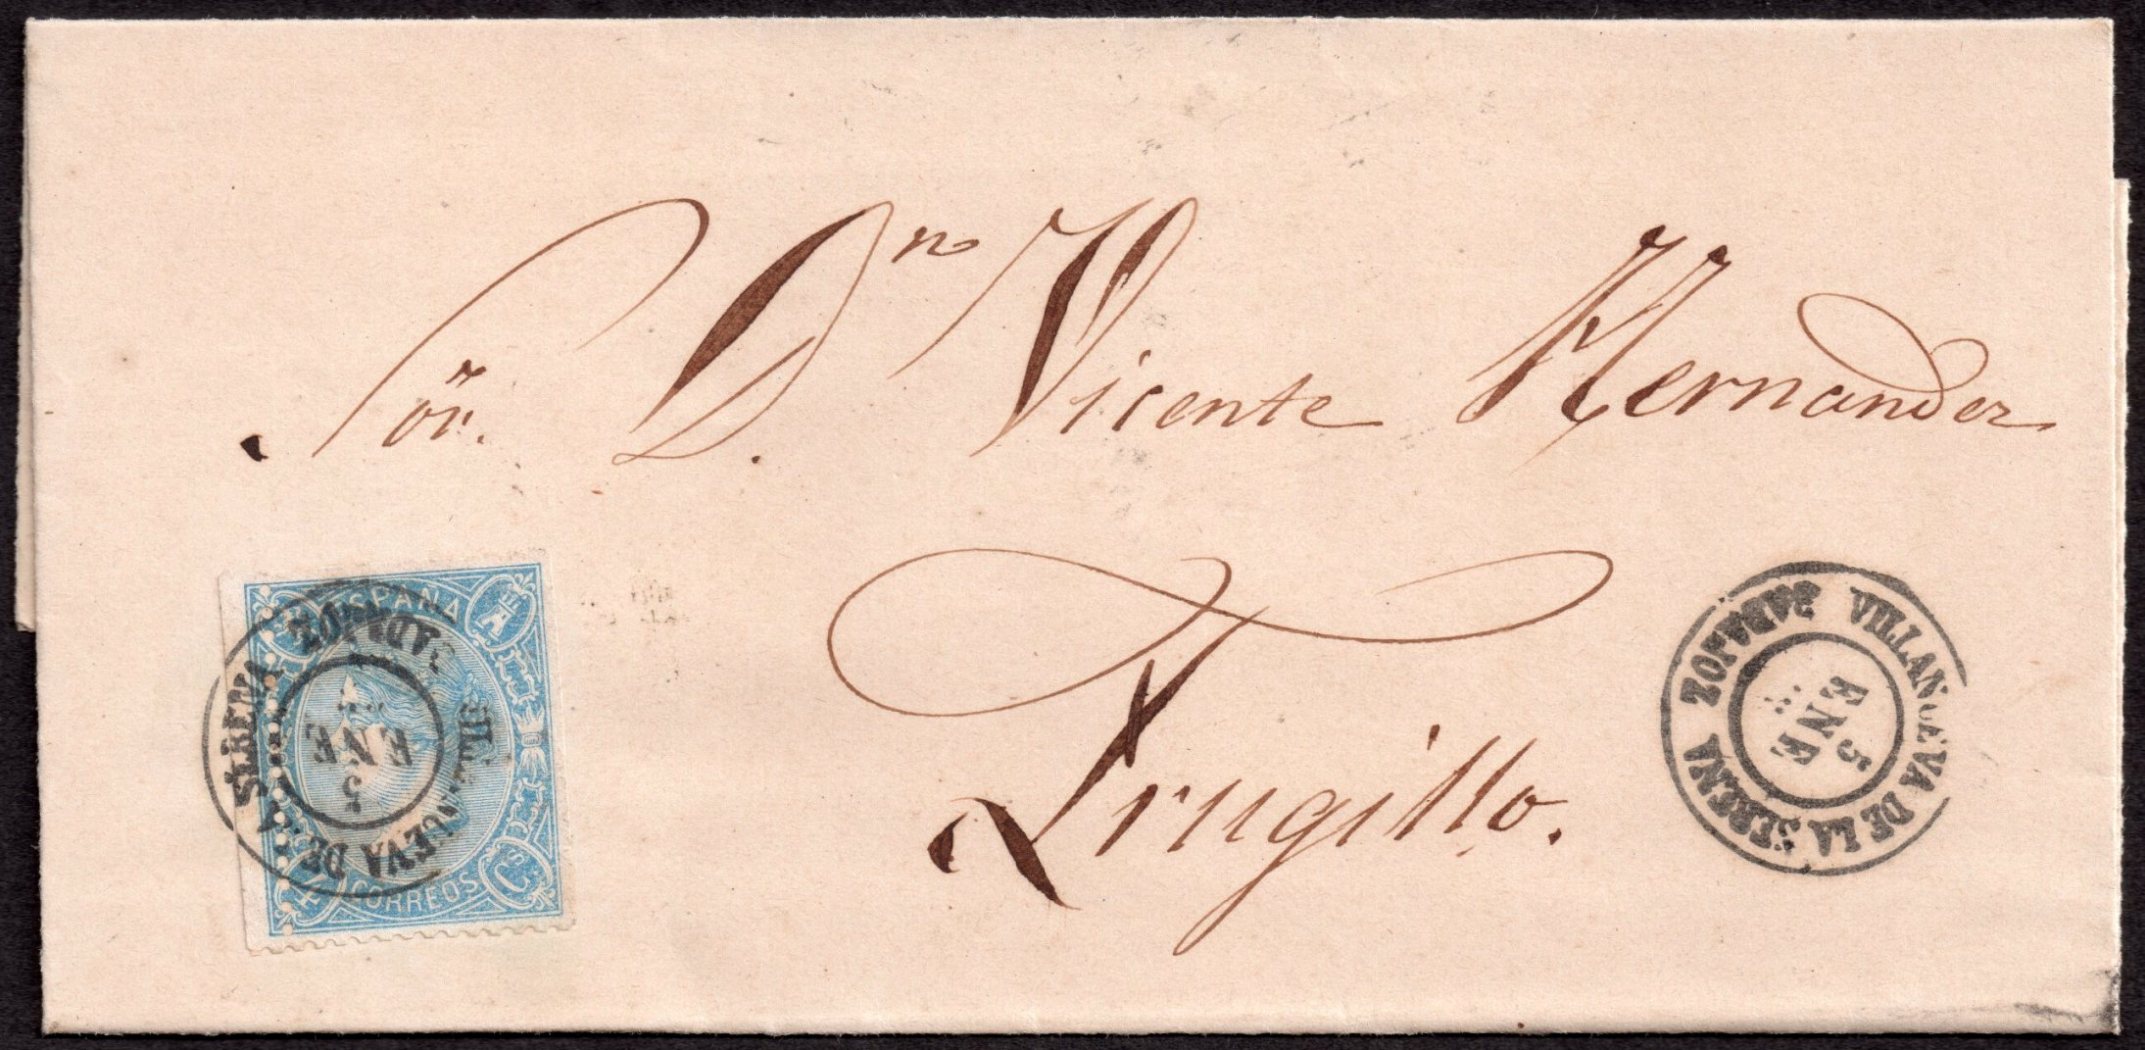 Sör. D.n Vicente Hernandez
Trugillo.
ESPAÑA
CORREOS
4 Cs
BADAJOZ
VILLANUEVA DE LA SERENA
5
ENE
BADAJOZ
VILLANUEVA DE LA SERENA
5
ENE